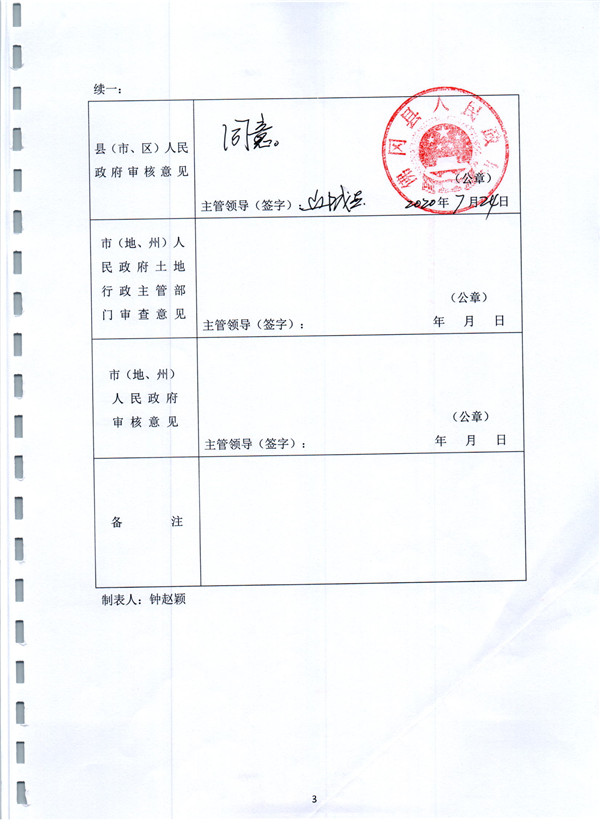 续一：
县（市、区）人民
政府审核意见
同意。
佛冈县人民政
（公章）
主管领导（签字）：
2020年7月24日
市（地、州）人
民政府土地
行政主管部
门审查意见
（公章）
主管领导（签字）：
年 月 日
市（地、州）
人民政府
审核意见
（公章）
主管领导（签字）：
年 月 日
备 注
制表人：钟赵颖
3